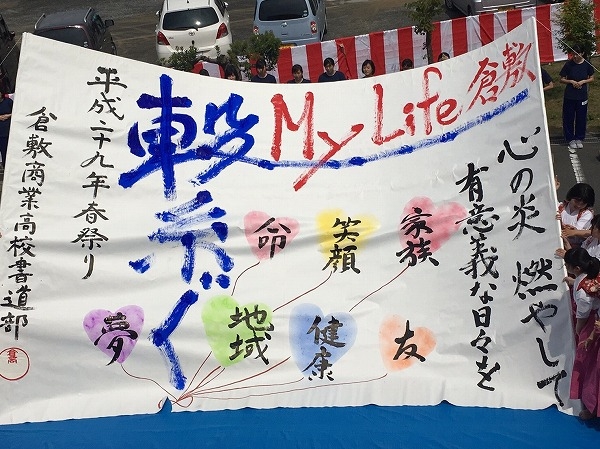 心の炎 燃やして
有意義な日々を
My Life 倉敷
繋ぐ
家族
笑顔
命
友
健康
地域
夢
平成二十九年 春祭り
倉敷商業高校書道部